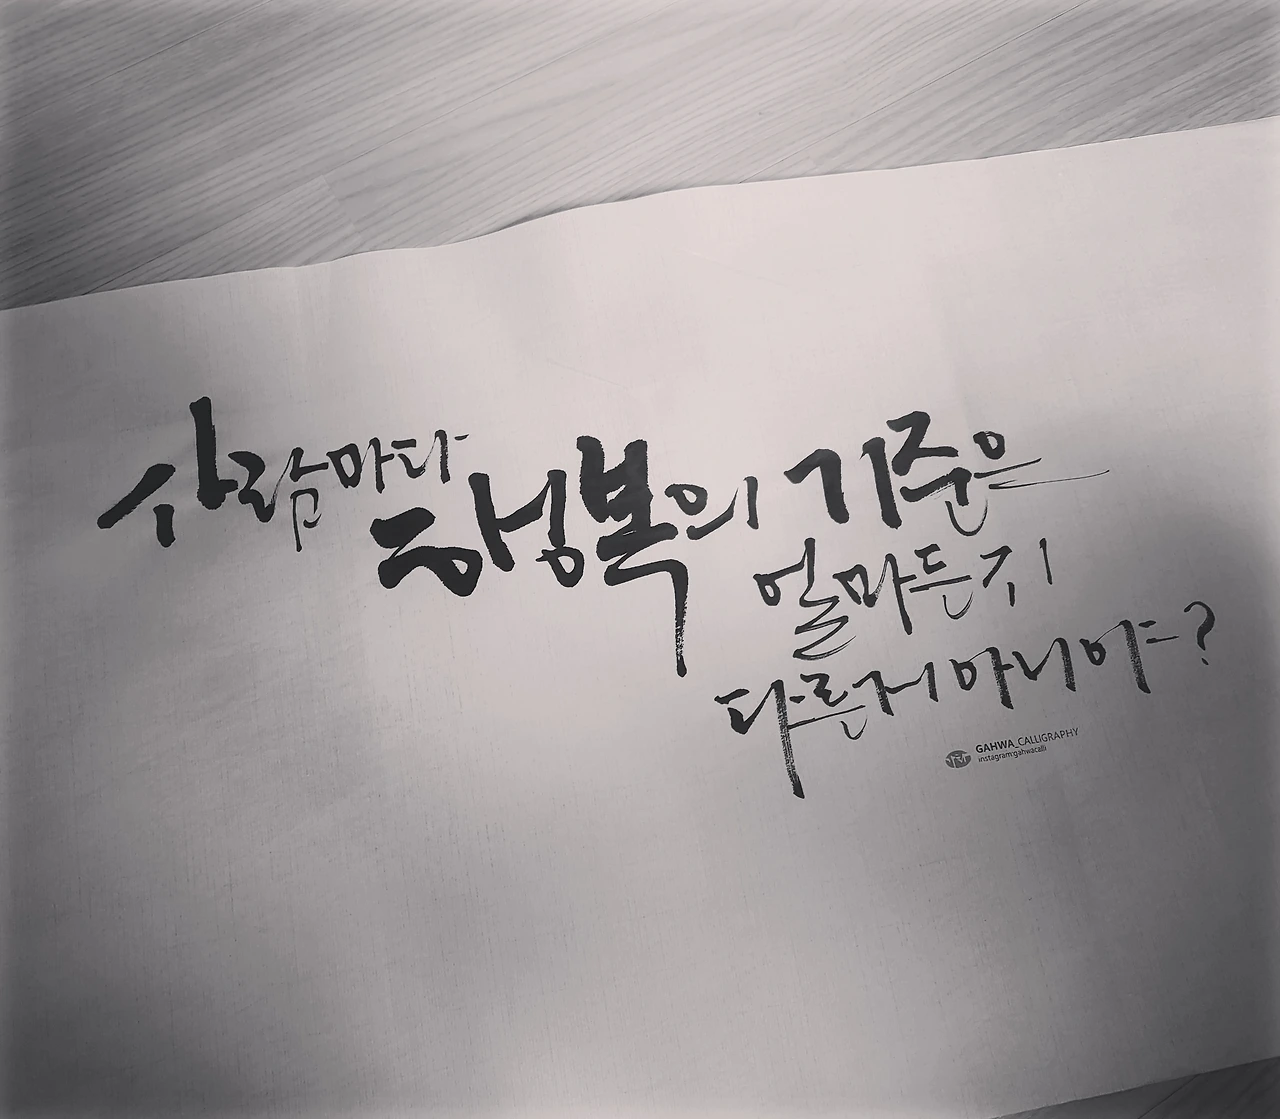 사람마다
행복의 기준은
얼마든지
다른거 아니야?
GAHWA_CALLIGRAPHY
instagram:gahwacalli